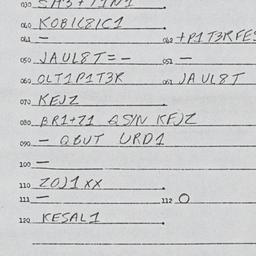 040 KOBIC8IC1
041 — 042 +P1T3RFES
050 JAUL8T=— 051 —
060 OLT1P1T3R 061 JAUL8T
070 KEJZ
080 BR1+71 QS/N KFJZ
090 — QBUT URD1
100 —
110 ZOJ1XX
111 — 112 O
120 KESAL1